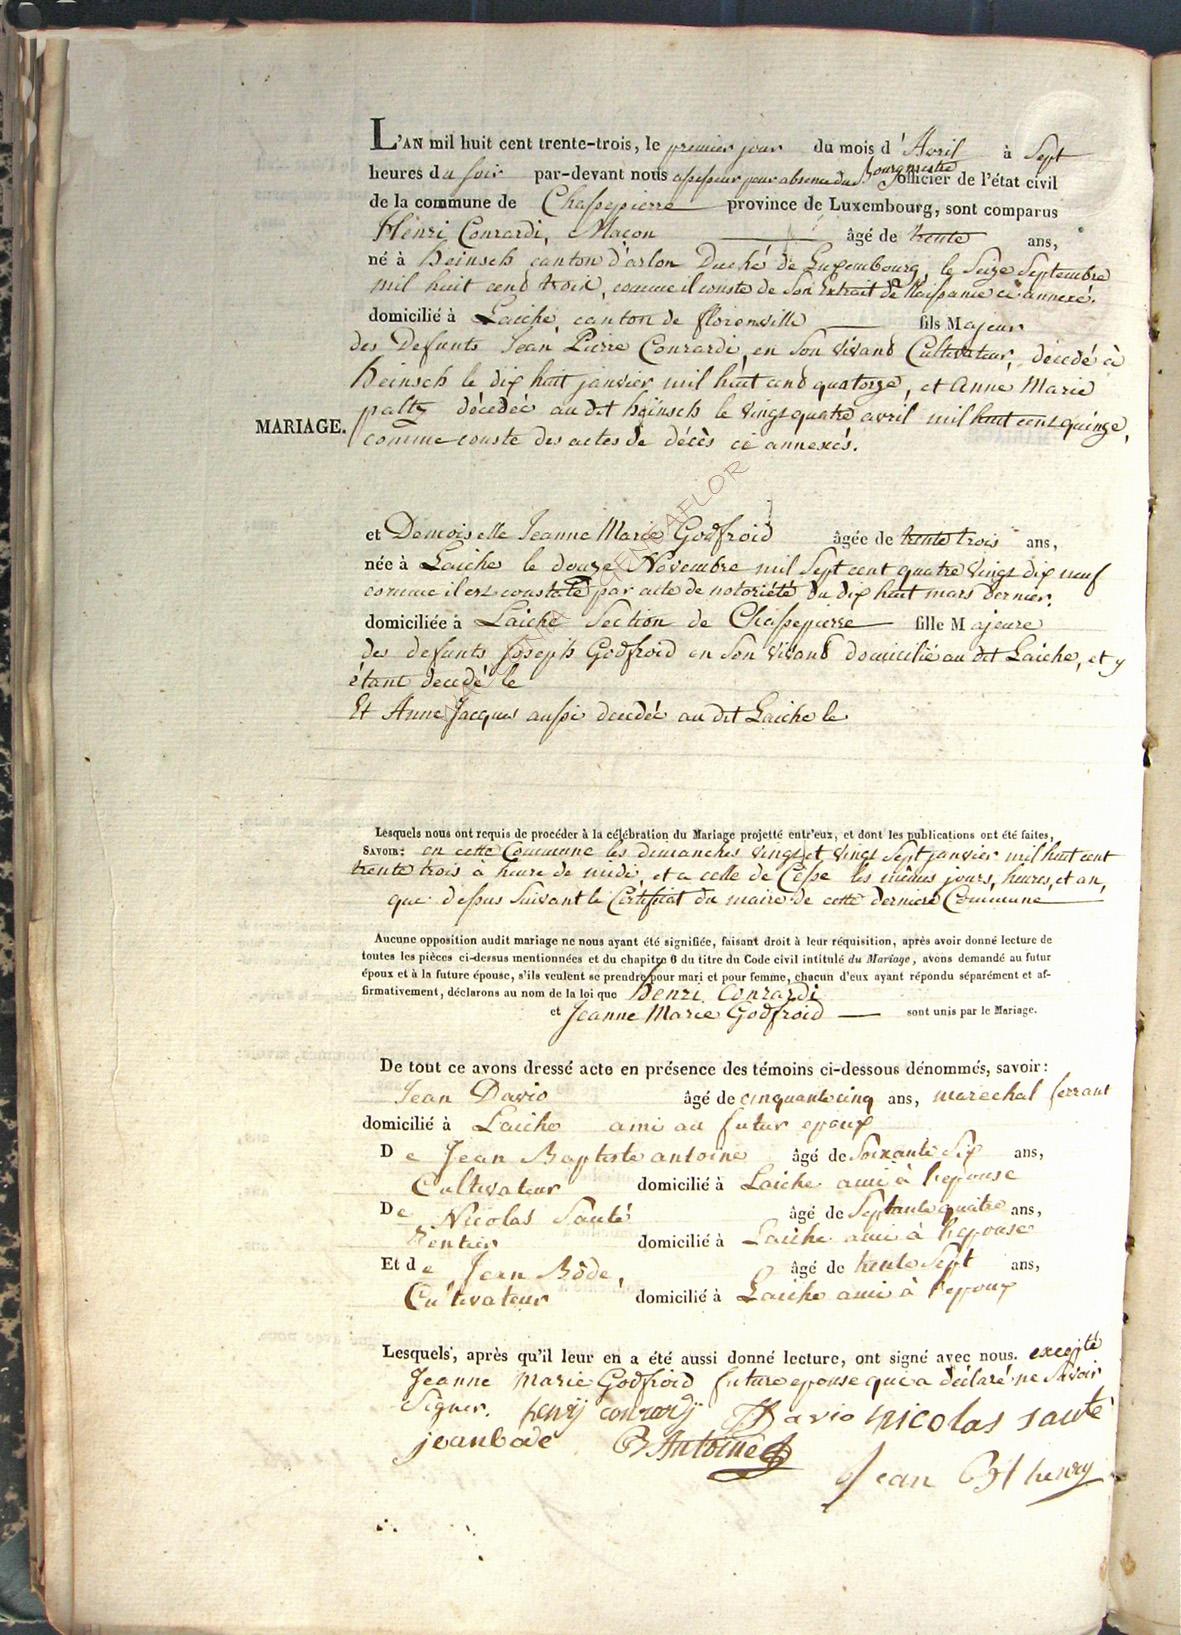 L'AN mil huit cent trente-trois, le premier jour du mois d'Avril à Sept
heures du soir par-devant nous assesseur pour absence du Bourgmestre officier de l'état civil
de la commune de Chassepierre province de Luxembourg, sont comparus
Henri Conrardi, Maçon âgé de trente ans,
né à heinsch canton d'arlon Duché de Luxembourg, le Seize Septembre
mil huit cent trois, comme il conste de son Extrait de Naissance ci annexé.
domicilié à Laiche, canton de florenville fils Majeur
des Defunts Jean Pierre Conrardi, en son vivant Cultivateur, décedé à
heinsch le dix huit janvier mil huit cent quatorze, et Anne Marie
MARIAGE. paltz décedée au dit heinsch le vingt quatre avril mil huit cent quinze,
comme conste des actes de décès ci annexés.
et Demoiselle Jeanne Marie Godfroid âgée de trente trois ans,
née à Laiche le douze Novembre mil Sept cent quatre vingt dix neuf
comme il est constaté par acte de notoriété du dix huit mars dernier.
domiciliée à Laiche Section de Chassepierre fille Majeure
des defunts Joseph Godfroid en son vivant domicilié au dit Laiche, et y
étant decedé le
Et Anne Jacques aussi decedée au dit Laiche le
Lesquels nous ont requis de procéder à la célébration du Mariage projetté entr'eux, et dont les publications ont été faites,
SAVOIR: en cette Commune les dimanches vingt et vingt Sept janvier mil huit cent
trente trois à heure de midi, et a celle de les mêmes jours, heures, et an,
que dessus suivant le Certificat du maire de cette derniere Commune
Aucune opposition audit mariage ne nous ayant été signifiée, faisant droit à leur réquisition, après avoir donné lecture de
toutes les pièces ci-dessus mentionnées et du chapitre 6 du titre du Code civil intitulé du Mariage, avons demandé au futur
époux et à la future épouse, s'ils veulent se prendre pour mari et pour femme, chacun d'eux ayant répondu séparément et af-
firmativement, déclarons au nom de la loi que henri Conrardi
et Jeanne Marie Godfroid sont unis par le Mariage.
De tout ce avons dressé acte en présence des témoins ci-dessous dénommés, savoir:
Jean Davio âgé de cinquante cinq ans, marechal ferrant
domicilié à Laiche ami au futur epoux
De Jean Baptiste antoine âgé de Soixante Six ans,
Cultivateur domicilié à Laiche ami à l'epouse
De Nicolas Sauté âgé de Septante quatre ans,
Rentier domicilié à Laiche ami à l'epouse
Et de Jean Bôde, âgé de trente Sept ans,
Cultivateur domicilié à Laiche ami à l'epoux
Lesquels, après qu'il leur en a été aussi donné lecture, ont signé avec nous. excepté
Jeanne Marie Godfroid future epouse qui a déclaré ne Savoir
Signer. henrij conrardij Davio nicolas sauté
jean bode B Antoine
Jean Bt henry